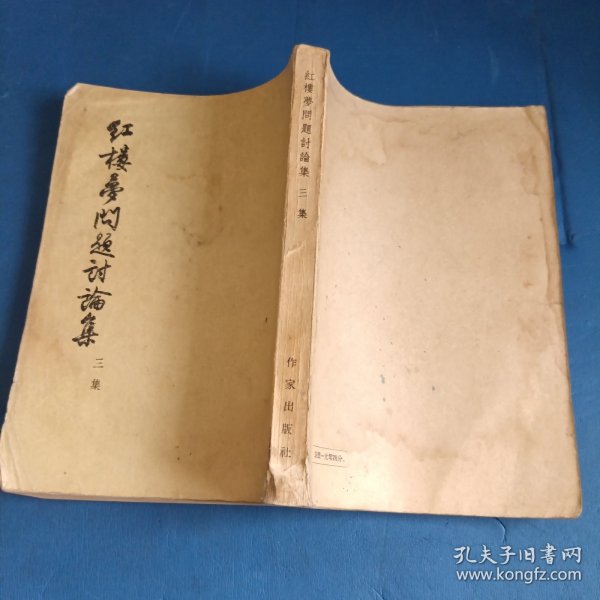 红楼夢问题討論集
三集
紅樓夢問題討論集 三集
作家出版社
孔夫子旧书网
www.kongfz.com